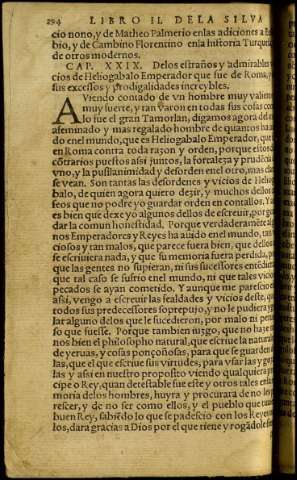 294 LIBRO II. DELA SILVA
cio nono, y de Matheo Palmerio enlas adiciones a Euse
bio, y de Cambino Florentino enla historia Turquesca
de otros modernos.
CAP. XXIX. Delos estraños y admirables vi
cios de Heliogabalo Emperador que fue de Roma, y
sus excessos y prodigalidades increybles.
AViendo contado de vn hombre muy valiente
muy fuerte, y tan varon en todas sus cosas como
lo fue el gran Tamorlan, digamos agora del mas
afeminado y mas regalado hombre de quantos ha aui
do enel mundo, que es Heliogabalo Emperador, que
en Roma contra toda razon y orden, porque estos
cõtrarios puestos assi juntos, la fortaleza y prudẽcia
vno, y la pusilanimidad y desorden enel otro, mas cla
se vean. Son tantas las desordenes y vicios de Helio
balo, de quien agora quiero dezir, y muchos dellos
feos que no podre yo guardar orden en contallos. Ya
es bien que dexe yo algunos dellos de escreuir, por gu
dar la comun honestidad. Porque verdaderamẽte al
nos Emperadores y Reyes ha auido enel mundo, tan
ciosos y tan malos, que parece fuera bien, que dellos
se escriuiera nada, y que su memoria fuera perdida, p
que las gentes no supieran, ni sus successores entẽdie
que tal caso se sufrio enel mundo, ni que tales vicios
pecados se ayan cometido. Y aunque me parescio
assi, vengo a escreuir las fealdades y vicios deste, q
todos sus predecessores soprepujo, y no le pudiera yg
lar alguno delos que le sucedieron, por malo ni per
so que fuesse. Porque tambien juzgo, que no haze m
nos bien el philosopho natural, que escriue la natural
de yeruas, y cosas ponçoñosas, para que se guarden d
las, que el que escriue sus virtudes, para vsar las y go
las y assi en nuestro proposito viendo qualquiera p
cipe o Rey, quan detestable fue este y otros tales en la
moria delos hombres, huyra y procurara de no le p
rescer, y de no ser como ellos, y el pueblo que tuuie
buen Rey, sabiẽdo lo que se padescio con los Reyes
los, dara gracias a Dios por el que tiene y rogãdole